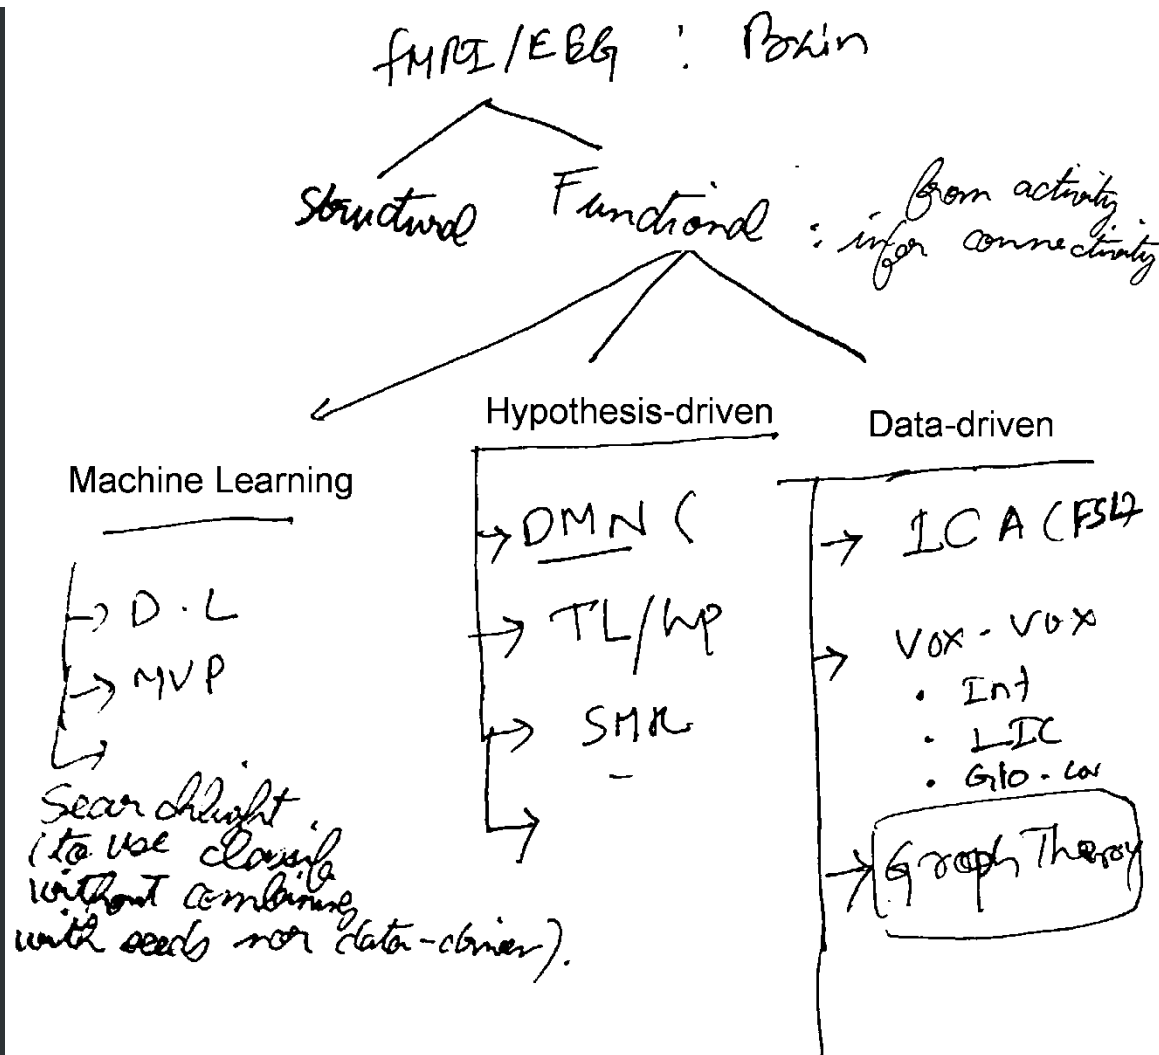 fMRI/EEG : Brain
Structural
Functional : from activity
infer connectivity
Machine Learning
D.L
MVP
Searchlight.
(to use classif
without combining
with seeds nor data-driven).
Hypothesis-driven
DMN (
TL/hp
SMR
Data-driven
ICA (FSL)
Vox - Vox
• Int
• LIC
• Glo - cor
Graph Theroy